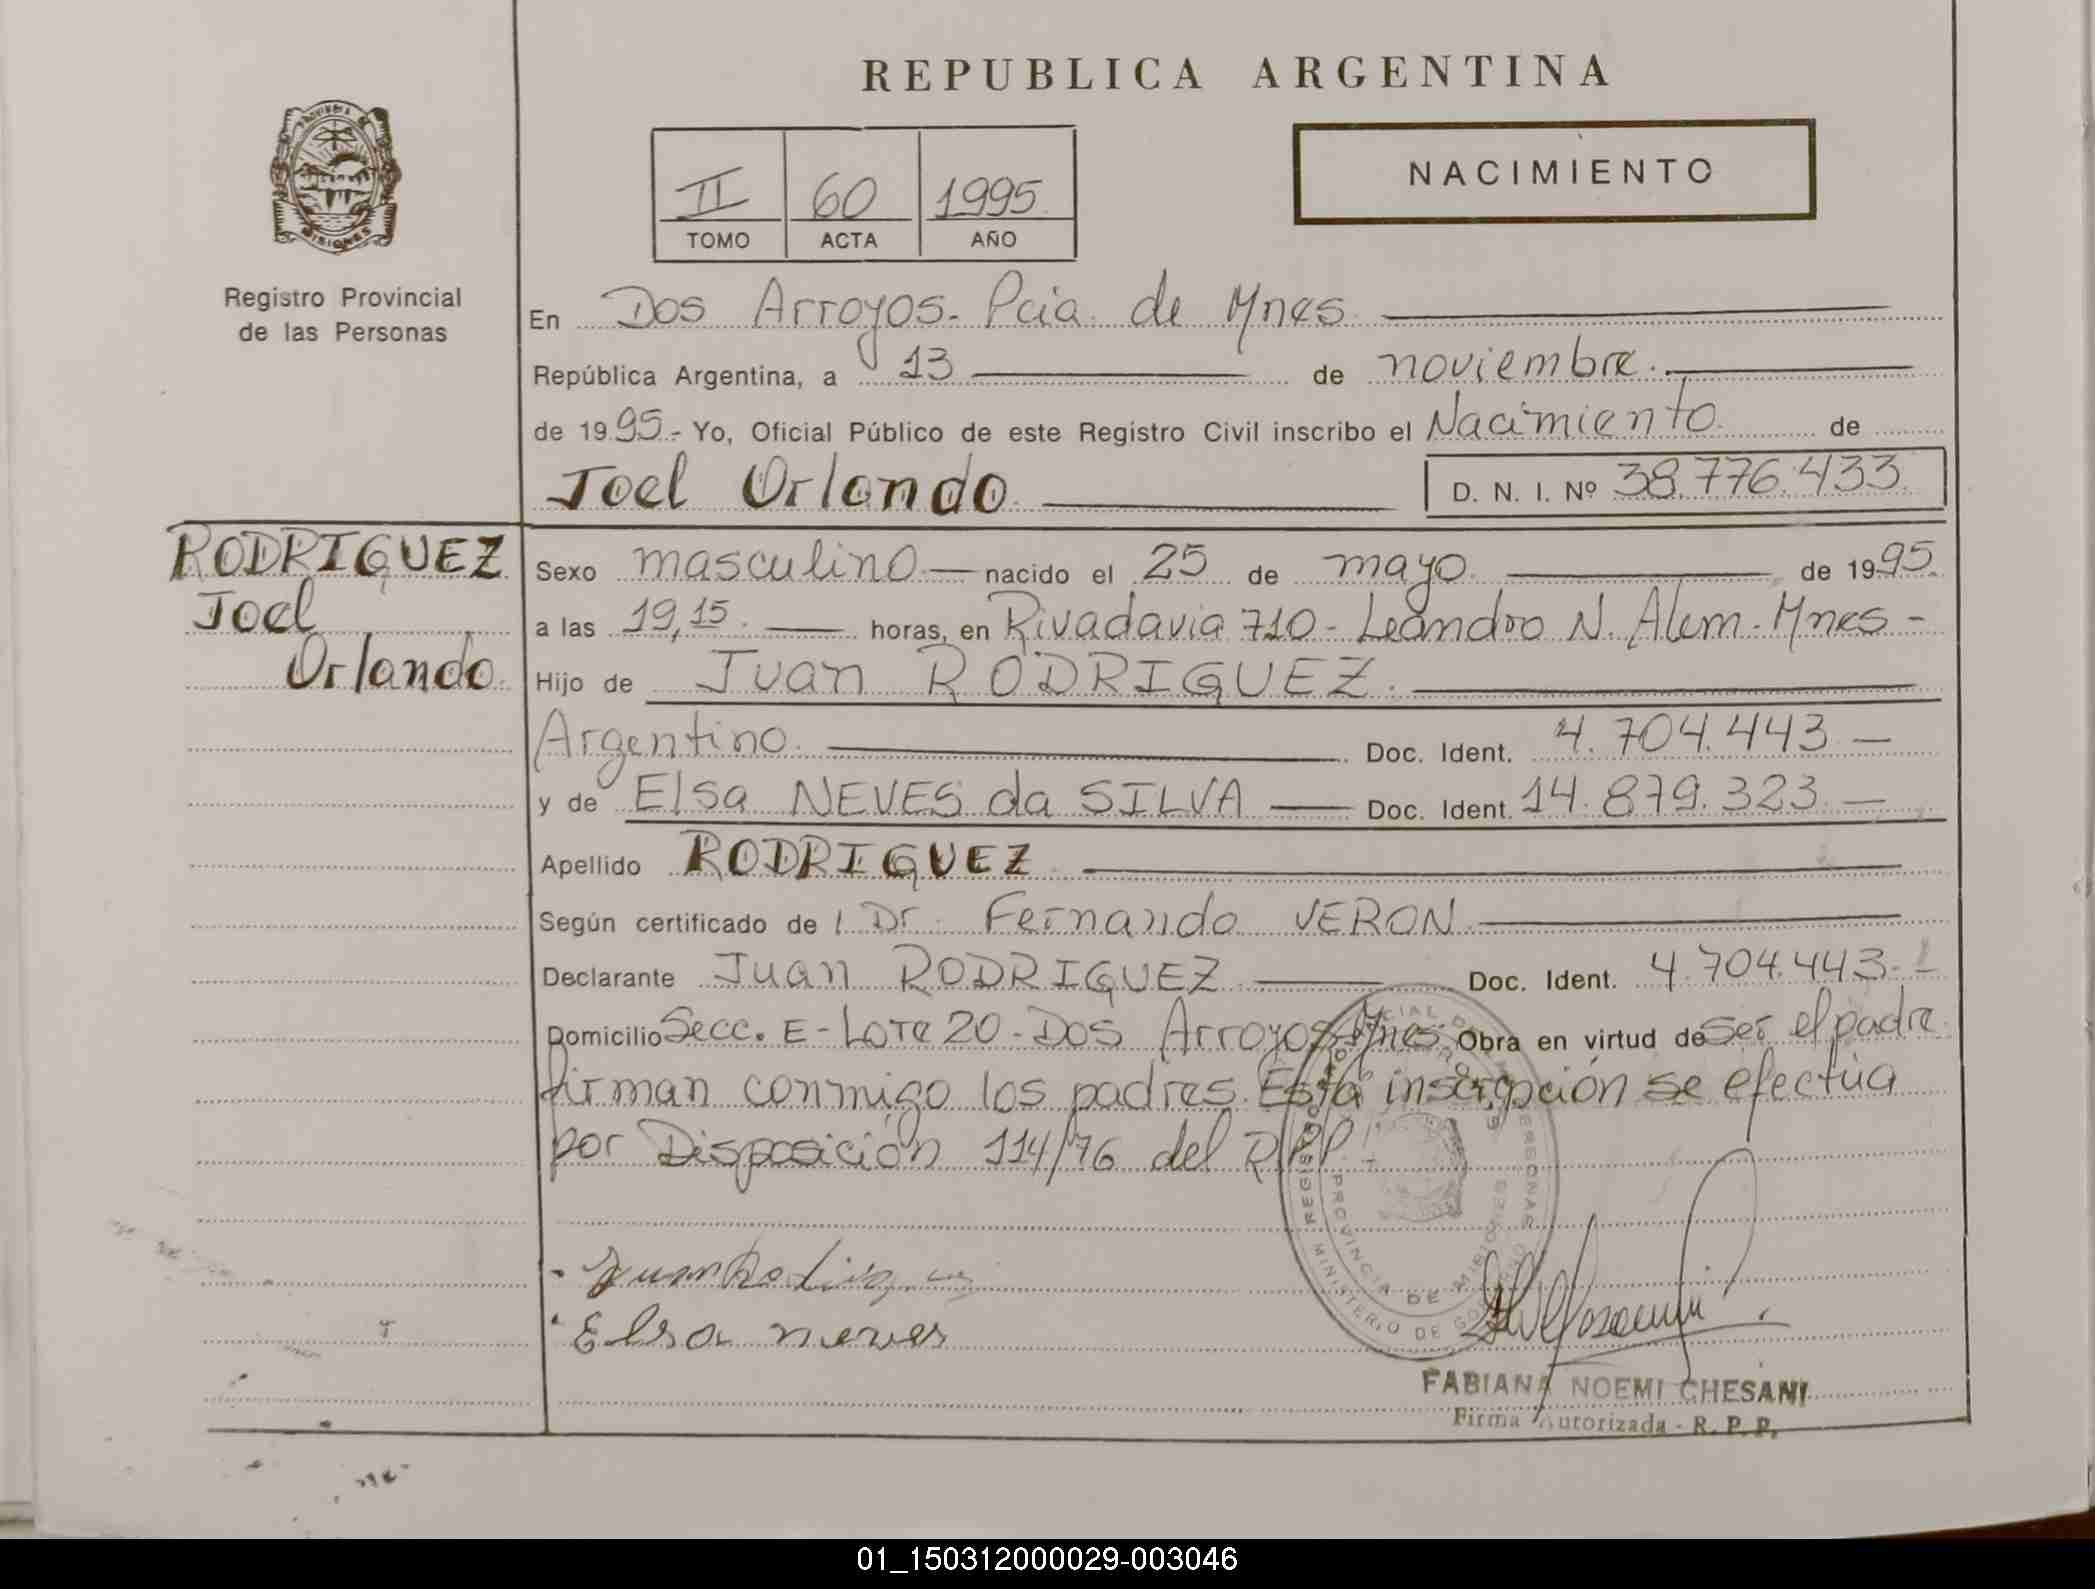 REPUBLICA ARGENTINA
PROVINCIA DE
MISIONES
Registro Provincial
de las Personas
II 60 1995
TOMO ACTA AÑO
NACIMIENTO
En Dos Arroyos. Pcia. de Mnes.
República Argentina, a 13 de noviembre.
de 1995.- Yo, Oficial Público de este Registro Civil inscribo el Nacimiento de
Joel Orlando.
D. N. I. Nº 38.776.433.
RODRIGUEZ
Joel
Orlando.
Sexo masculino — nacido el 25 de mayo de 1995.
a las 19,15. horas, en Rivadavia 710 - Leandro N. Alem. Mnes -
Hijo de Juan RODRIGUEZ.
Argentino. Doc. Ident. 4.704.443 —
y de Elsa NEVES da SILVA — Doc. Ident. 14.879.323 —
Apellido RODRIGUEZ
Según certificado de l Dr. Fernando VERON
Declarante Juan RODRIGUEZ Doc. Ident. 4.704.443.-
Domicilio Secc. E - Lote 20 - Dos Arroyos Mnes Obra en virtud de ser el padre.
firman conmigo los padres. Esta inscripción se efectúa
por Disposición 114/76 del R.P.P.
PROVINCIA DE MISIONES
MINISTERIO DE GOBIERNO
Elsa neves
FABIANA NOEMI CHESANI
Firma Autorizada - R. P. P.
01_150312000029-003046